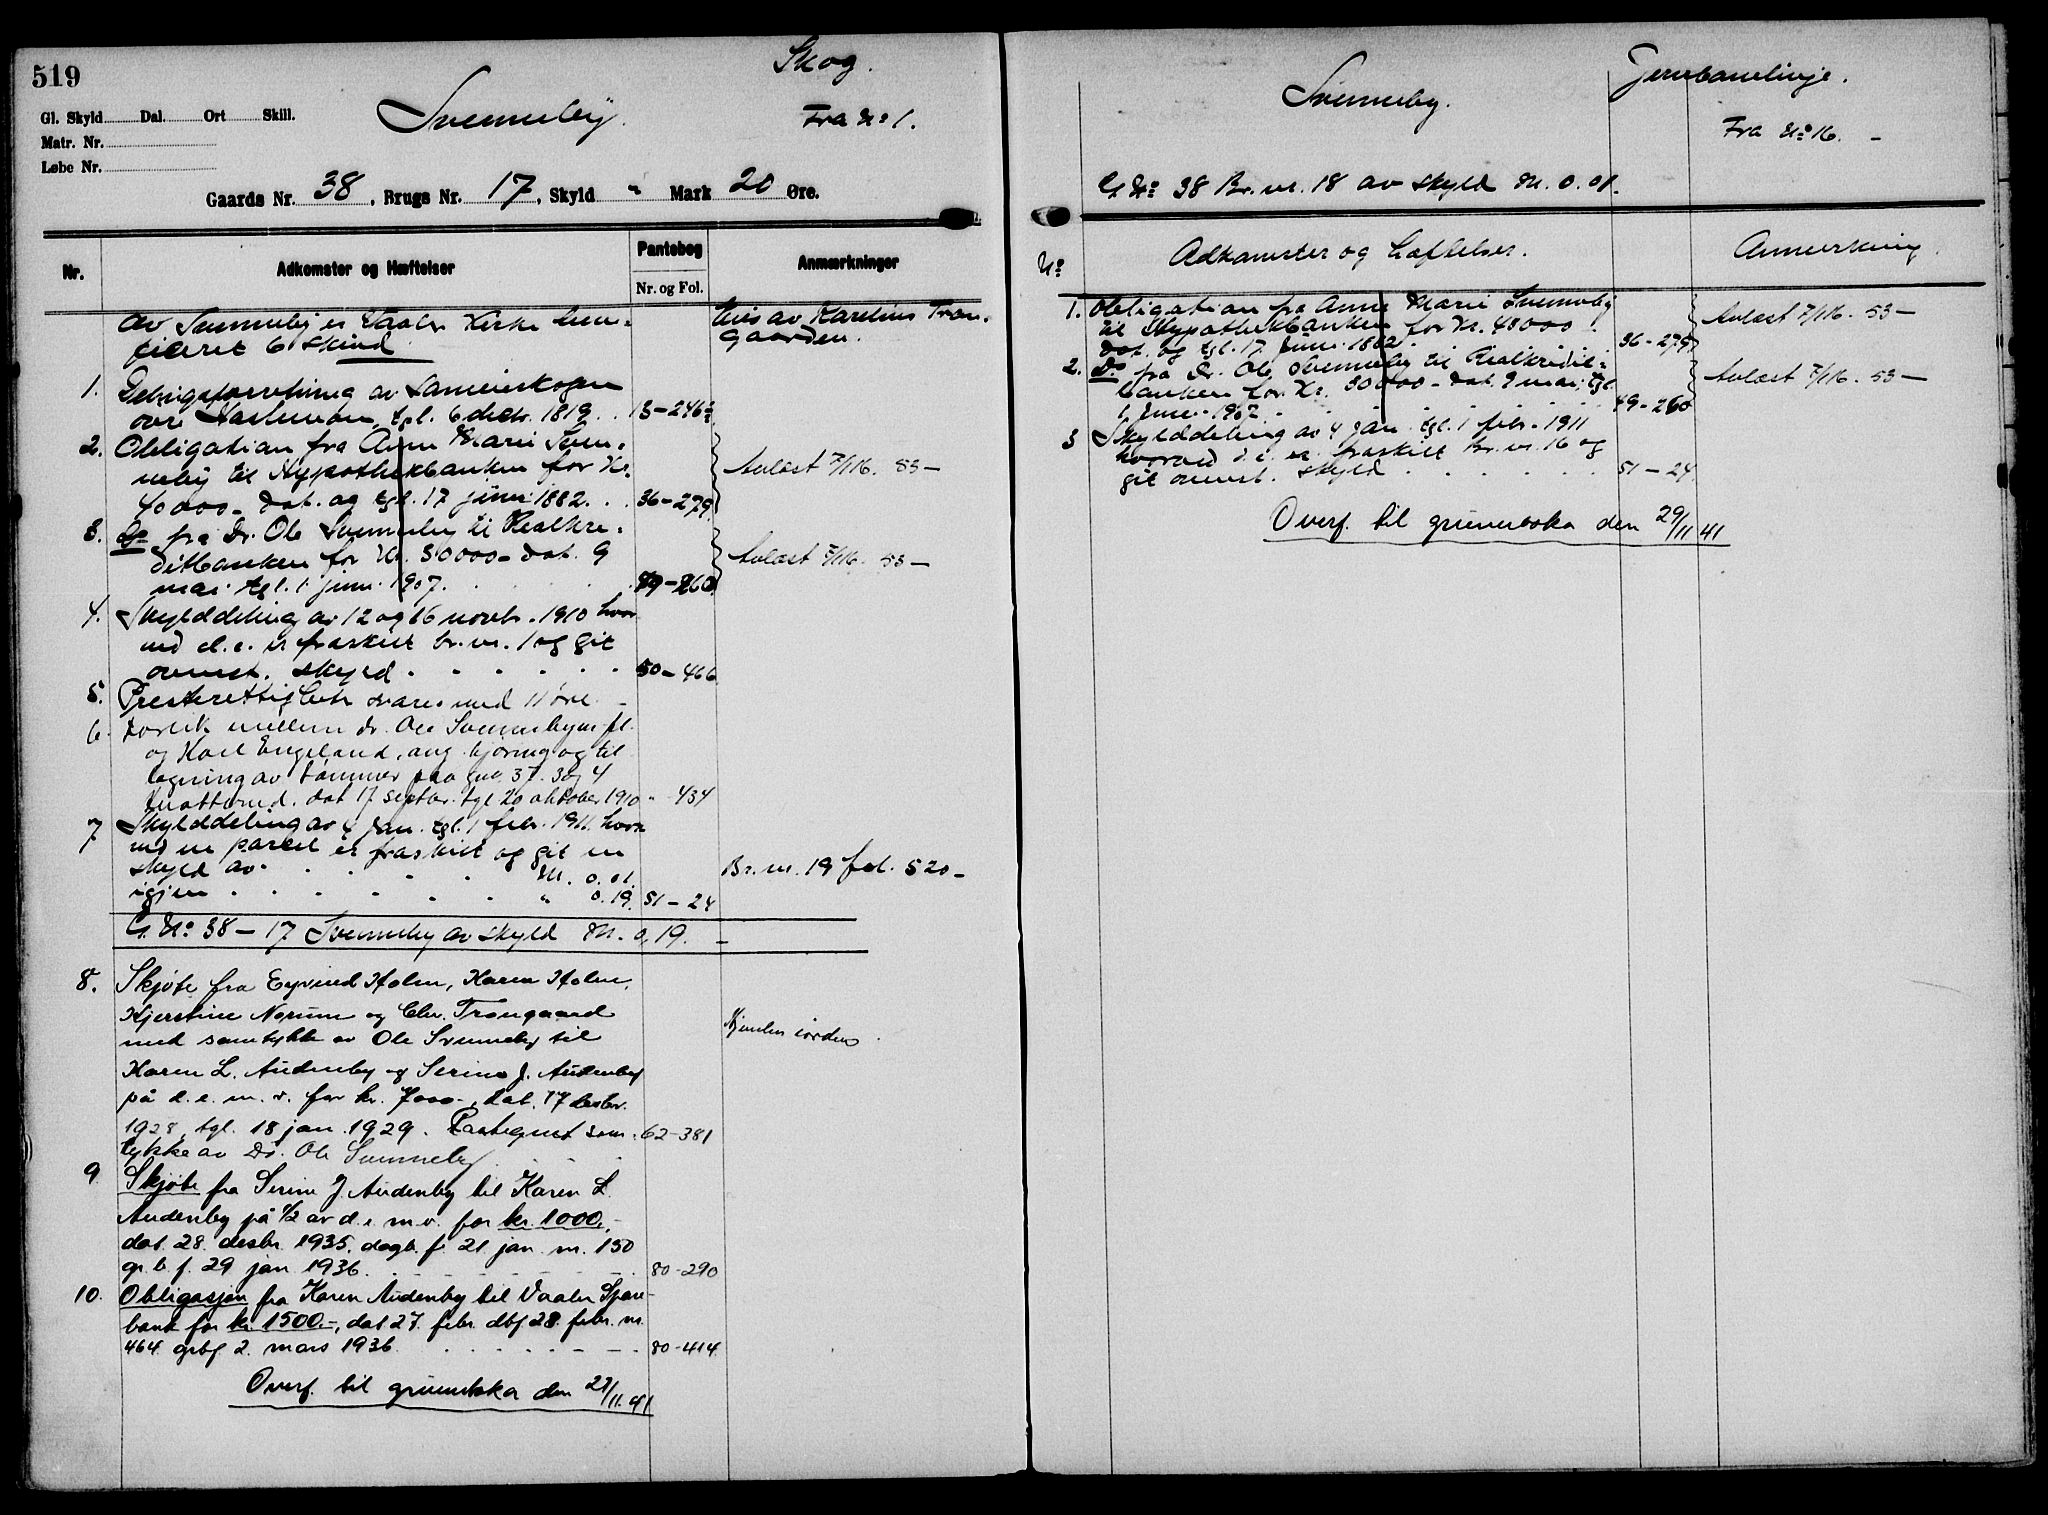 519
Skog.
Gl. Skyld Dal. Ort Skill.
Svenneby.
Fra No 1.
Matr. Nr.
Løbe Nr.
Gaards Nr. 38, Brugs Nr. 17, Skyld " Mark 20 Øre.
Nr.
Adkomster og Hæftelser
Pantebog
Nr. og Fol.
Anmærkninger
av Svenneby er Vaaler Kirke bene-
ficeret 6 skind
Eies av Karelius Tron-
gaarden.
1. Delingsforretning av Sameieskogen
øvre Hasle­moen, tgl. 6 decbr. 1819. . 13-246
2. Obligation fra Anne Marie Sven-
neby til Hypothekbanken for Kr.
40000- dat. og tgl. 17 juni 1882. . . 36-279
Avlæst 7/1 16. 53-
3. Do fra Dr. Ole Svenneby til Realkre-
ditbanken for Kr. 30000- dat. 9
mai. tgl. 1. juni 1907. 49-260
Avlæst 7/1 16. 53-
4. Skylddeling av 12 og 16 novbr. 1910 hvor
ved d.e. er fraskilt br. nr. 1 og git
ovenst. skyld. 50-466
5. Presterettighete svares med 11 øre.
6. Forlik mellem dr. Ole Svenneby m. fl.
og Karl Engeland, ang. kjøring og til
lægning av tømmer paa gnr. 37. 3 og 4
dat 17 septbr. tgl 20 oktober 1910 " 434
7 Skylddeling av 4 jan. tgl. 1 febr. 1911. hvor
ved en parcel er fraskilt og git en
skyld av. M. 0.01.
Br. nr. 19 fol. 520-
igjen " 0.19. 51-24
G. No 38-17 Svenneby av skyld M. 0,19. -
8. Skjøte fra Eyvind Holm, Karen Holm,
Kjerstine Norum og Chr. Trongaard
med samtykke av Ole Svenneby til
Karen L. Audenby og Serine J. Audenby
på d. e. m. v. for kr. 7000-, dat. 17 desbr.
1928, tgl. 18 jan. 1929. Paategnet sam- 62-381
tykke av Dr. Ole Svenneby
9. Skjøte fra Serine J. Audenby til Karen L.
Audenby på 1/2 av d. e. m. v. for kr. 1000,-
dat. 28. desbr. 1935. dagb. f. 21 jan. nr. 150
gr. b. f. 29 jan. 1936. 80-290
10. Obligasjon fra Karen Audenby til Vaaler Spare-
bank for kr. 1500.-, dat 27. febr. dbf 28. febr. nr.
464. grbf 2. mars 1936. 80-414
Overf. til grunnboka den 29/11.41
Svenneby.
Jernbanelinje.
Fra No 16. -
G No 38 Br. nr. 18 av skyld M. 0.01.
No
Adkomster og hæftelser.
Anmerkning.
1. Obligation fra Anne Marie Svenneby
til Hypothekbanken for Kr. 40000
dat. og tgl. 17 juni 1882. 36-279
Avlæst 7/1 16. 53-
2. Do fra Dr. Ole Svenneby til Realkredit-
banken for Kr. 30000- dat. 9 mai. tgl.
1. juni 1907 49-260
Avlæst 7/1 16. 53-
3 Skylddeling av 4 jan. tgl. 1 febr. 1911
hvorved d. e. er fraskilt Br. nr. 16 og
git ovenst. skyld 51-24
Overf. til grunnboka den 29/11 41